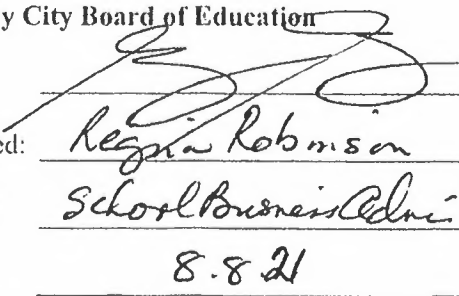 y City Board of Education
ed: Regina Robinson
School Business Admi
8.8.21